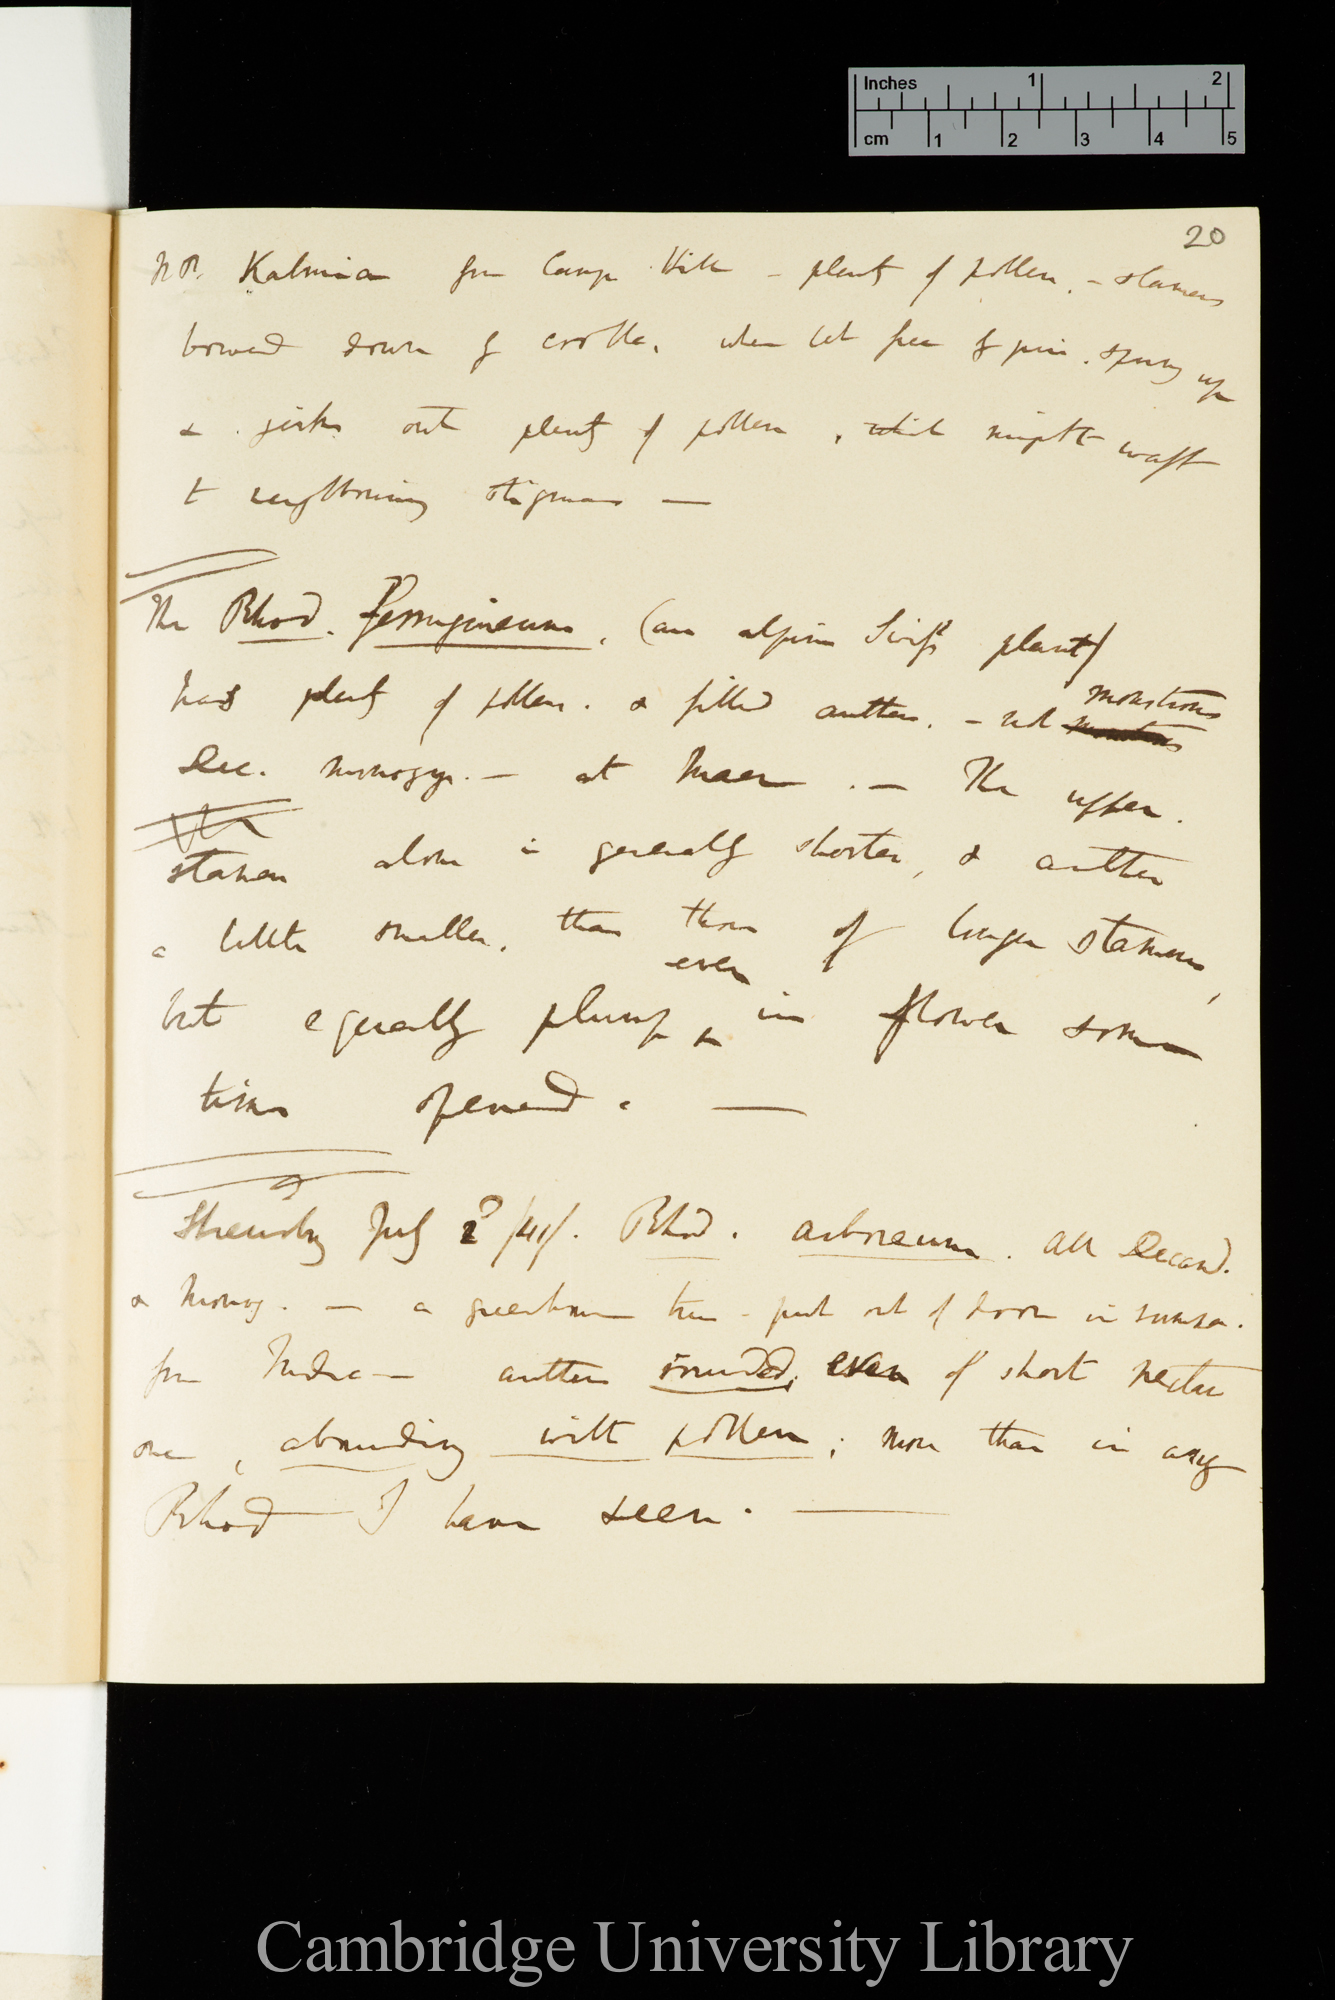 Inches 1 2
cm 1 2 3 4 5
20
N.B. Kalmia from Camp Hill – plenty of pollen. – stamens
bowed down by corolla, when let free by pin. springs up
& jerks out plenty of pollen, which might waft
to neighbouring stigmas —
The Rhod. ferrugineum. (an alpine Swiss plant)
has plenty of pollen. & filled anthers. – not monstrous
Dec. monogyn. — at Maer. — The upper.
stamen alone is generally shorter, & anther
a little smaller, than those of longer stamens,
even
but equally plump, in flower some
times opened. —
Shrewsbury July 2d /41/. Rhod. arboreum. All Decand.
& Monog. — a greenhouse tree – put out of doors in summer.
from India — anthers rounded, even of short nectar
one, abounding with pollen; more than in any
Rhod I have seen. —
Cambridge University Library